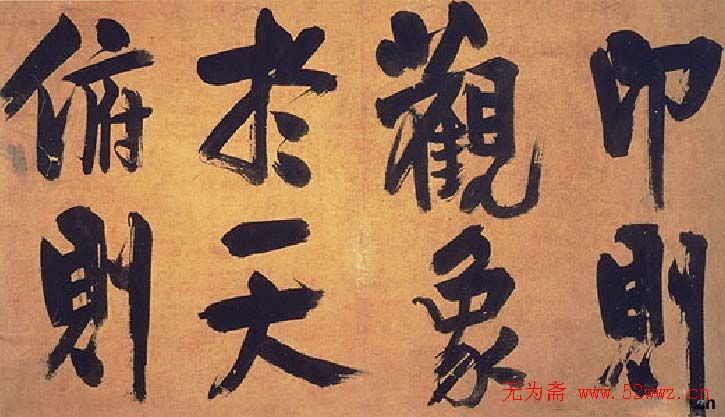 卬則
觀象
於天
俯則
无为斋 www.52wwz.cn